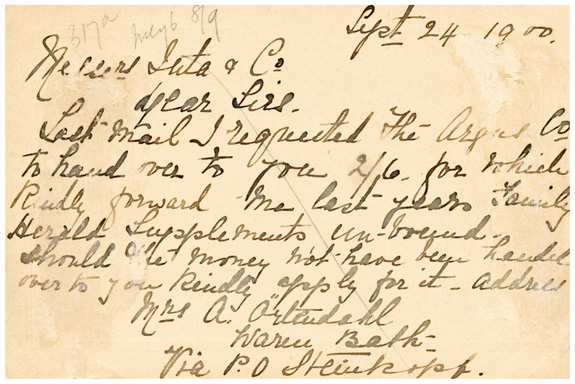 317a July 6 8/9
Sept 24 1900.
Messrs Juta & Co
Dear Sirs.
Last mail I requested The Argus Co
to hand over to you 2/6 for which
Kindly forward me last years Family
Herald Supplements un-bound.
should the money not have been handed
over to you Kindly apply for it - Address
Mrs A. Örtendahl
Warm Bath -
Via P.O Steinkopf.